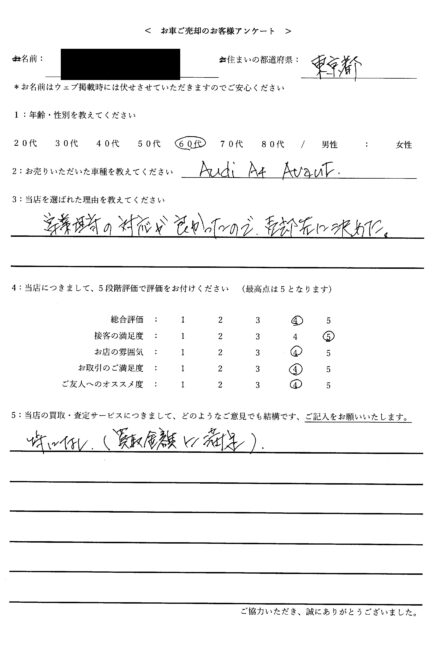 ＜　お車ご売却のお客様アンケート　＞
お名前：　お住まいの都道府県：　東京都
＊お名前はウェブ掲載時には伏せさせていただきますのでご安心ください
1：年齢・性別を教えてください
20代　30代　40代　50代　60代　70代　80代　/　男性　：　女性
2：お売りいただいた車種を教えてください　Audi A4 Avant.
3：当店を選ばれた理由を教えてください
営業担当の対応が良かったので、売却先に決めた。
4：当店につきまして、5段階評価で評価をお付けください　（最高点は5となります）
総合評価　：　1　2　3　4　5
接客の満足度　：　1　2　3　4　5
お店の雰囲気　：　1　2　3　4　5
お取引のご満足度　：　1　2　3　4　5
ご友人へのオススメ度　：　1　2　3　4　5
5：当店の買取・査定サービスにつきまして、どのようなご意見でも結構です、ご記入をお願いいたします。
特になし.（買取金額に満足）.
ご協力いただき、誠にありがとうございました。